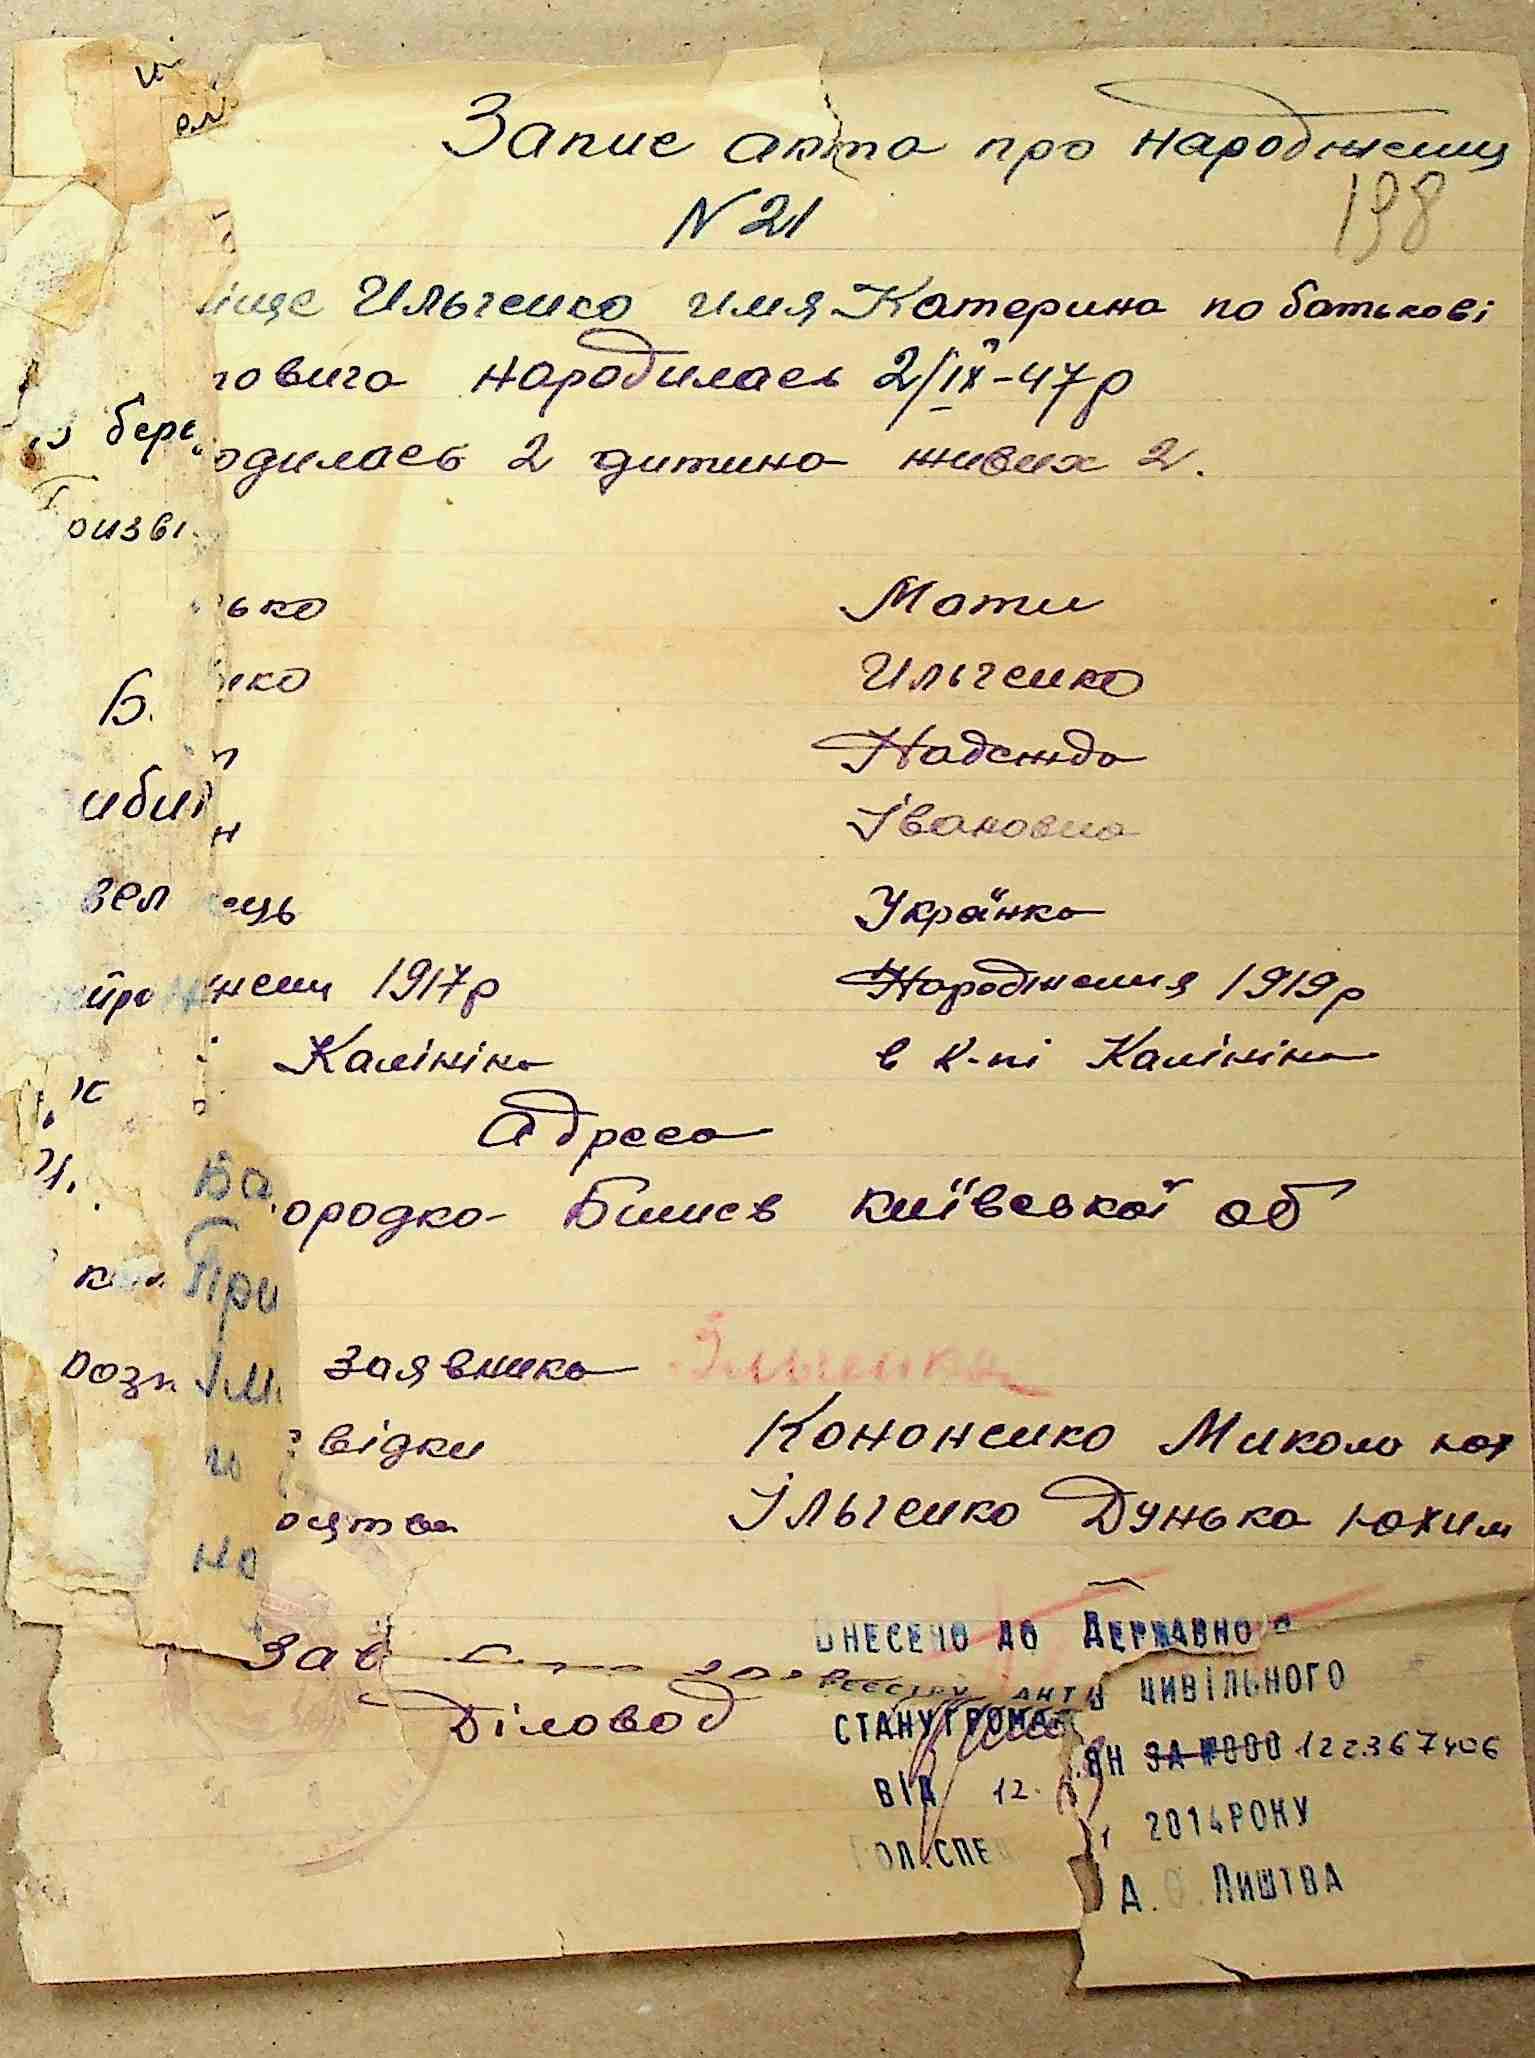 Запис акта про народження
N 21
198
іще Ильченко имя Катерина по батькові
овича народилась 2/IX-47р
одилась 2 дитина живих 2.
ризві
ько Мати
нко Ильченко
Надежда
ибий Івановна
вел ець Українка
жени 1917р Народження 1919р
Калініна в к-пі Калініна
Адреса
Ба ородка Бишев київської об
При
розп Ім заявника Ільченко
відки Кононенко Микола Юх
оцтва Ільченко Дунька Юхим
но
Зав
Діловод
ВНЕСЕНО ДО ДЕРЖАВНОГО
РЕЄСТРУ АКТІВ ЦИВІЛЬНОГО
СТАНУ ГРОМАДЯН ЗА №000 122367406
ВІД 12. 2014РОКУ
ГОЛ.СПЕЦ А.О.ЛИШТВА